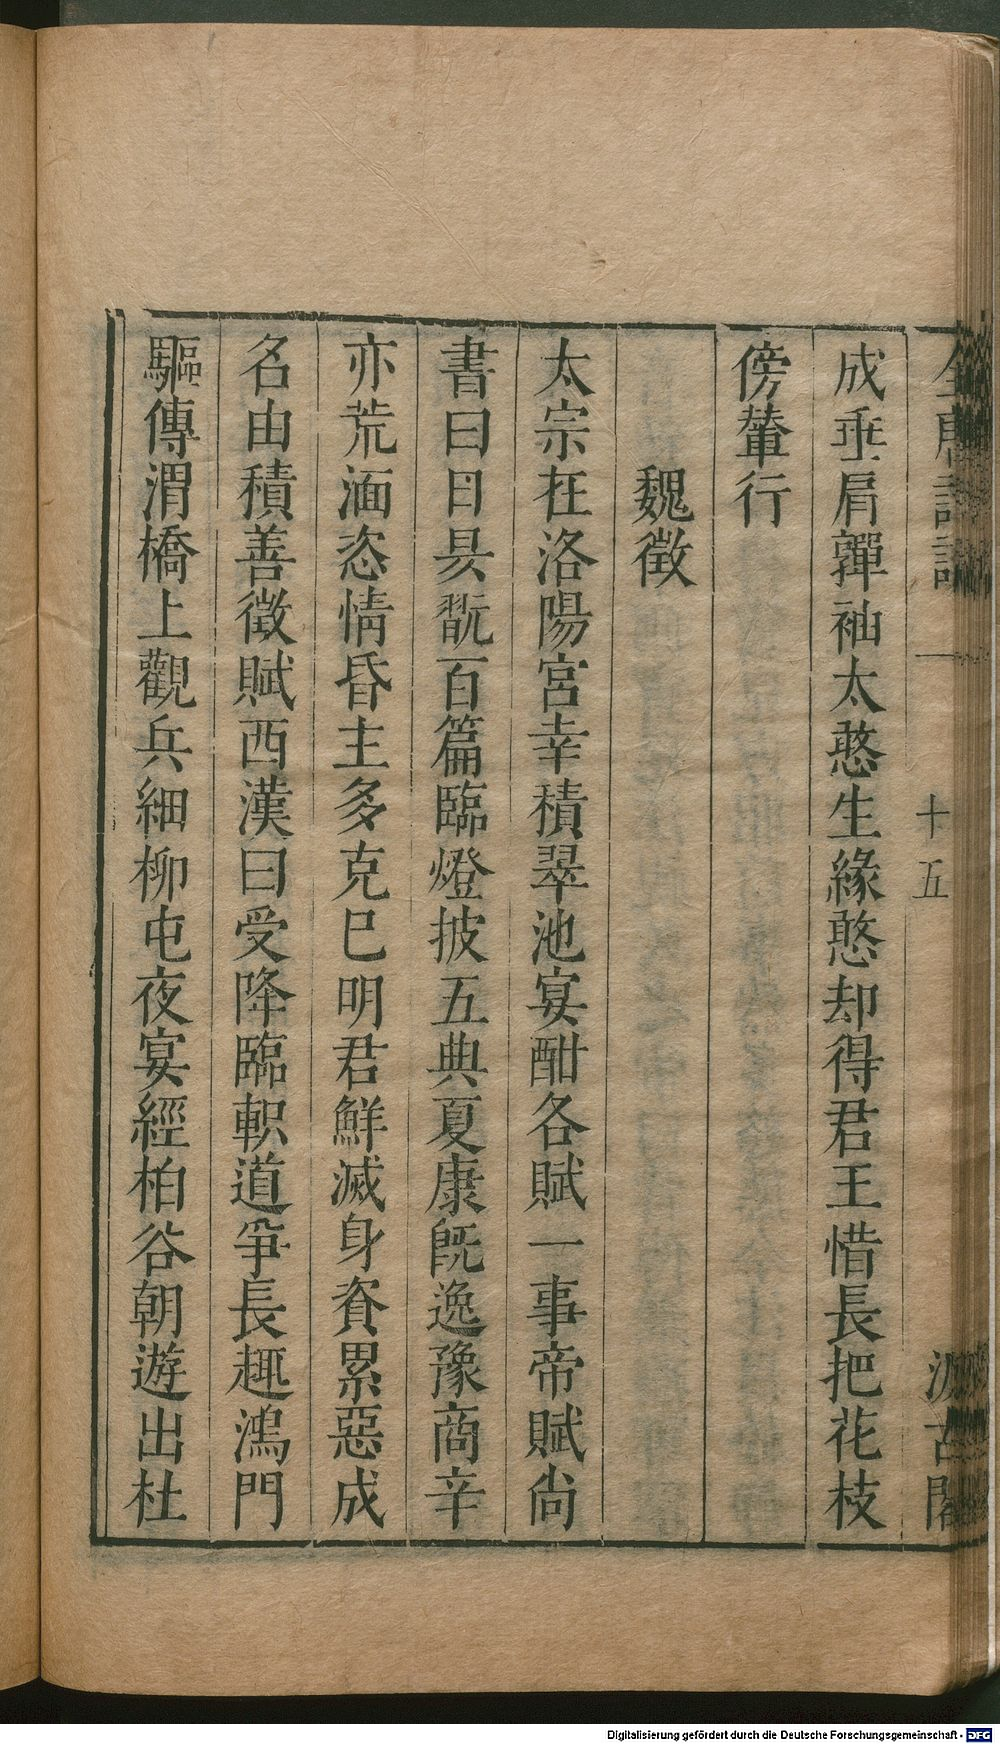 成垂肩嚲袖太憨生緣憨却得君王惜長把花枝
傍輦行
魏徵
太宗在洛陽宮幸積翠池宴酣各賦一事帝賦尚
書曰日昃翫百篇臨燈披五典夏康旣逸豫商辛
亦荒湎恣情昏主多克巳明君鮮滅身資累惡成
名由積善徵賦西漢曰受降臨軹道爭長趣鴻門
驅傳渭橋上觀兵細柳屯夜宴經柏谷朝遊出杜
一
十五
汲古閣
Digitalisierung gefördert durch die Deutsche Forschungsgemeinschaft - DFG